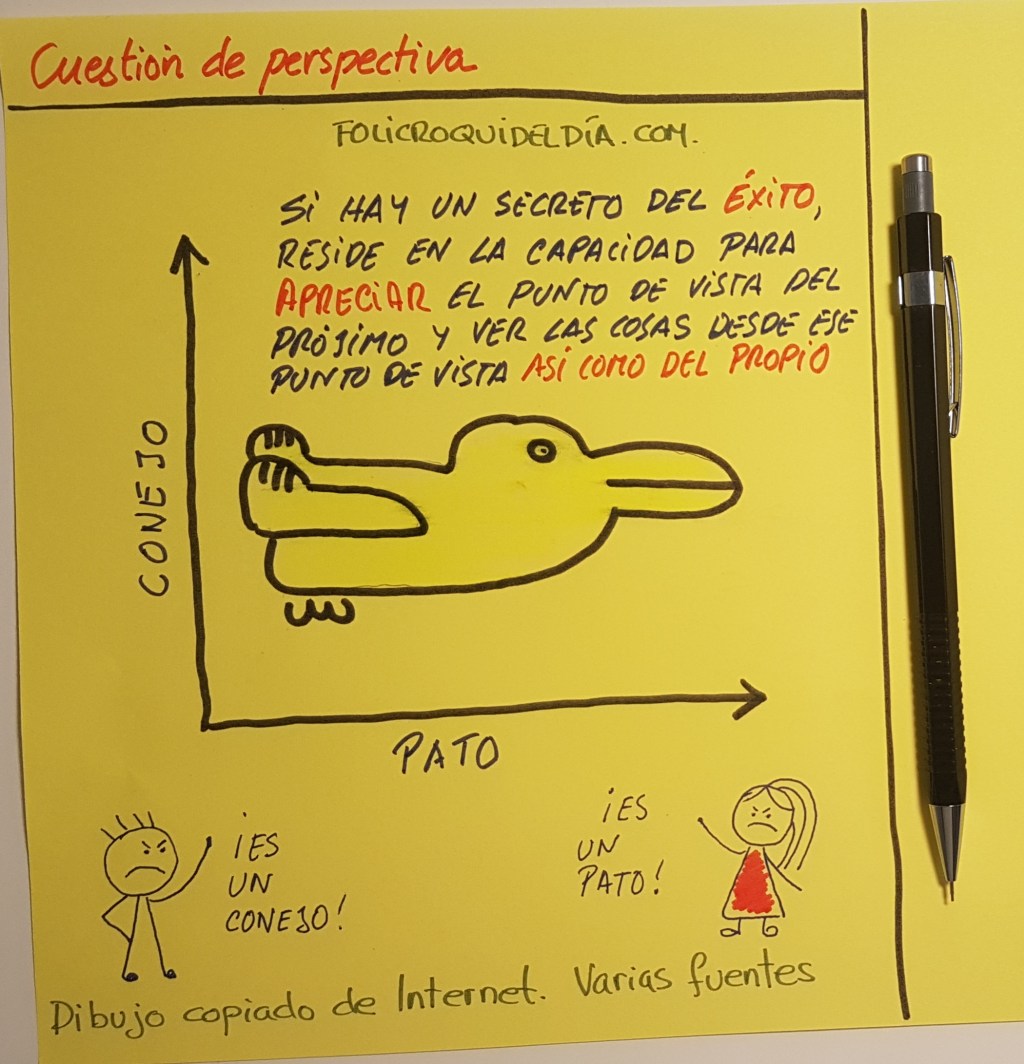 Cuestión de perspectiva
FOLICROQUIDELDÍA.COM.
SI HAY UN SECRETO DEL ÉXITO,
RESIDE EN LA CAPACIDAD PARA
APRECIAR EL PUNTO DE VISTA DEL
PRÓJIMO Y VER LAS COSAS DESDE ESE
PUNTO DE VISTA ASÍ COMO DEL PROPIO
CONEJO
PATO
¡ES
UN
CONEJO!
¡ES
UN
PATO!
Dibujo copiado de Internet. Varias fuentes